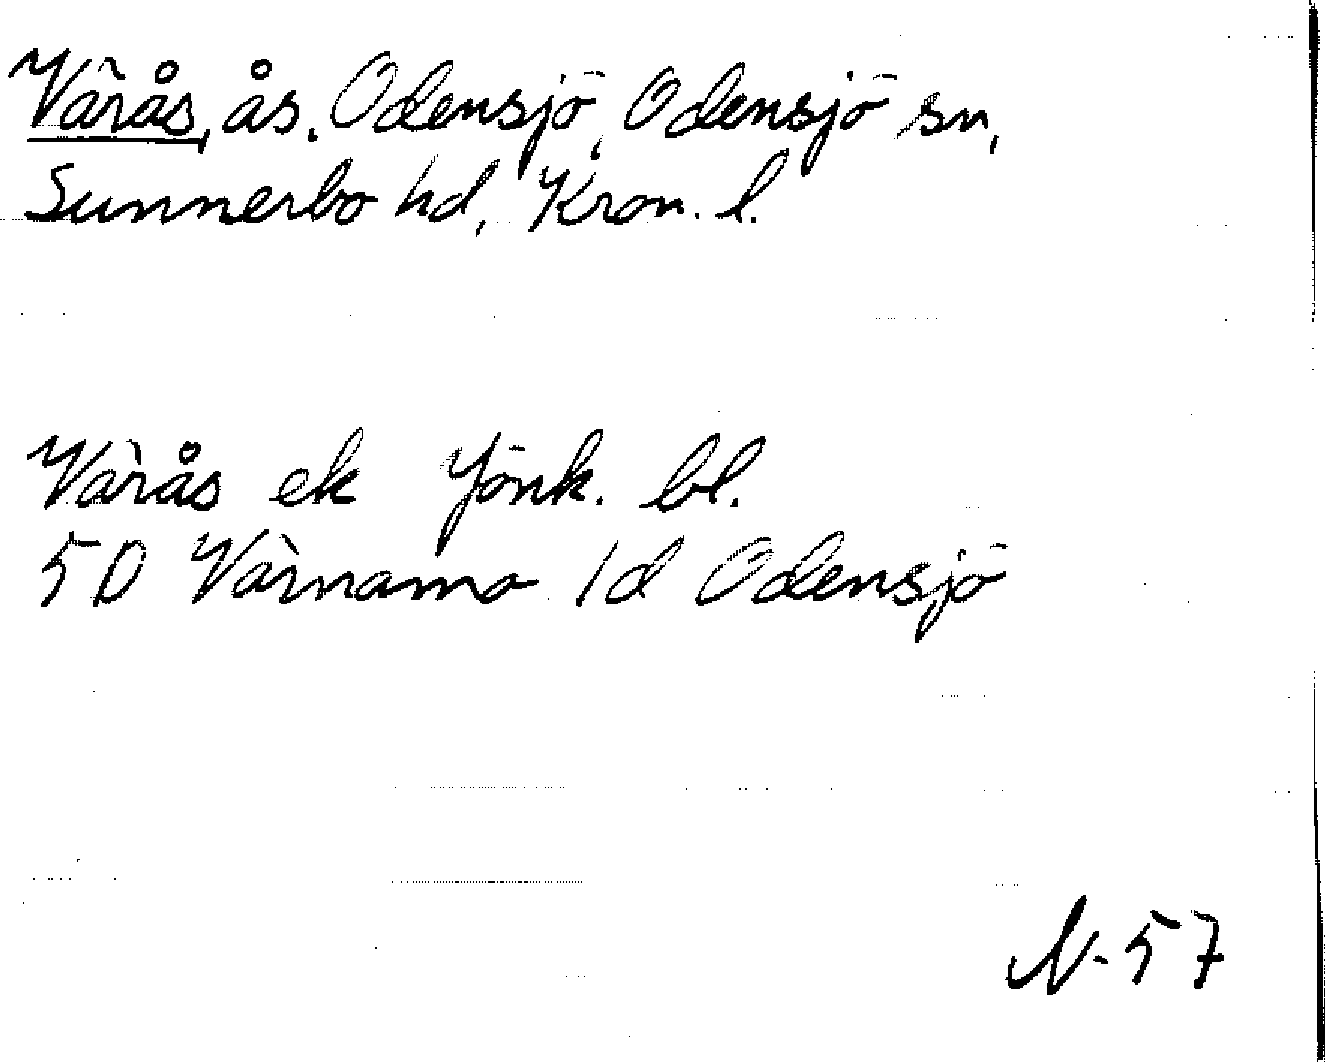 Värås, ås. Odensjö, Odensjö sn,
Sunnerbo hd, Kron. l.
Värås ek Jönk. bl.
5D Värnamo 1d Odensjö
N-57